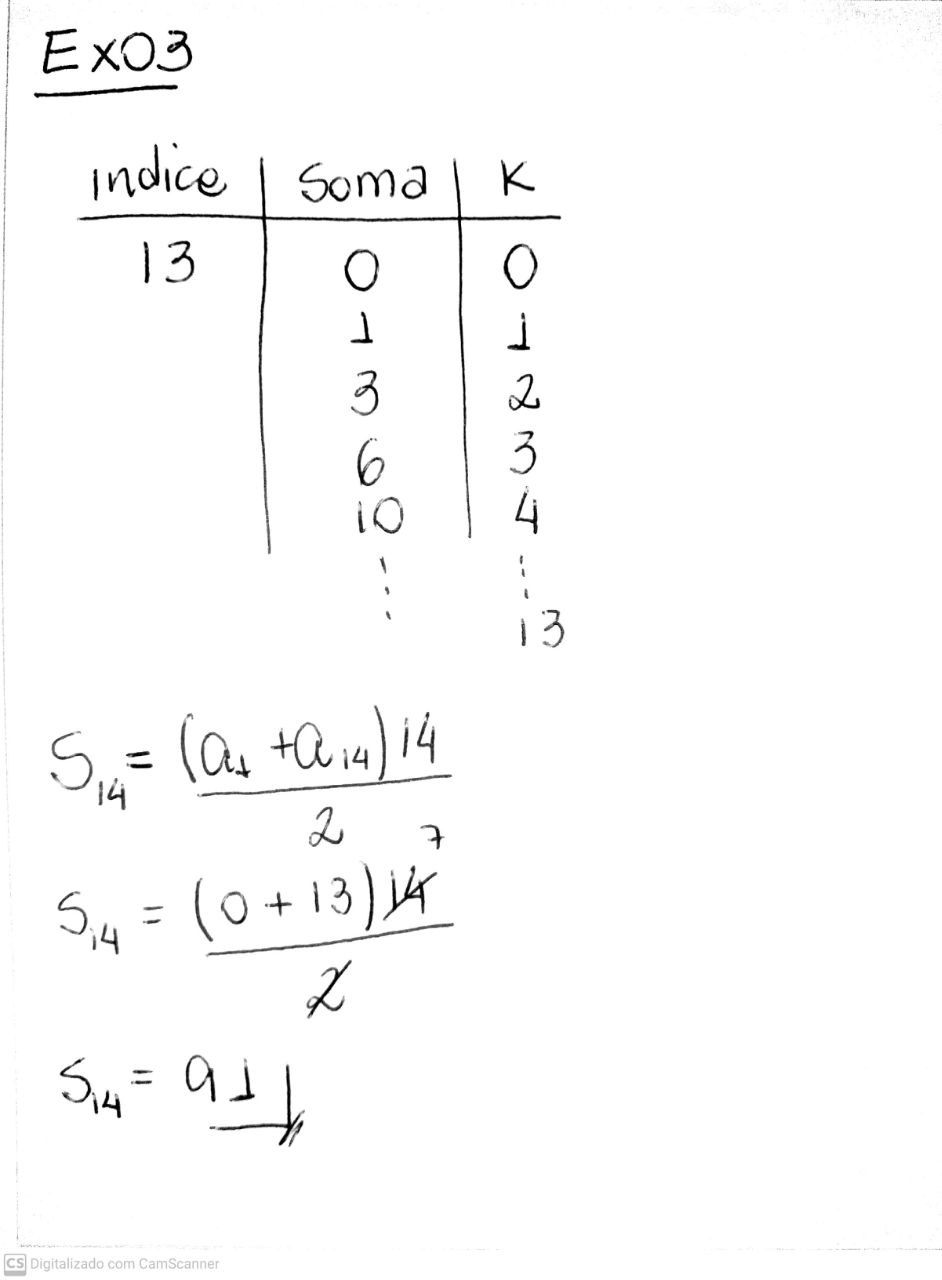 Ex03
indice | Soma | K
13 | 0 | 0
1 | 1
3 | 2
6 | 3
10 | 4
⋮ ⋮
13
S₁₄ = (a₁ + a₁₄) 14
2
7
S₁₄ = (0 + 13) 14
2
S₁₄ = 91
CS Digitalizado com CamScanner